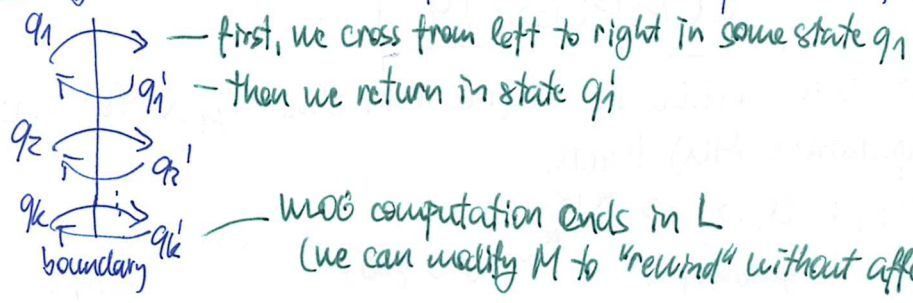 q1 — first, we cross from left to right in some state q1
q1' — then we return in state q1'
q2 q2'
qk qk' — WLOG computation ends in L
boundary (we can modify M to "rewind" without aff